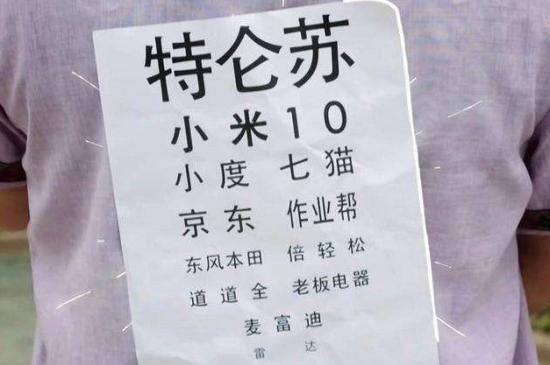 特仑苏
小米10
小度 七猫
京东 作业帮
东风本田 倍轻松
道道全 老板电器
麦富迪
雷达